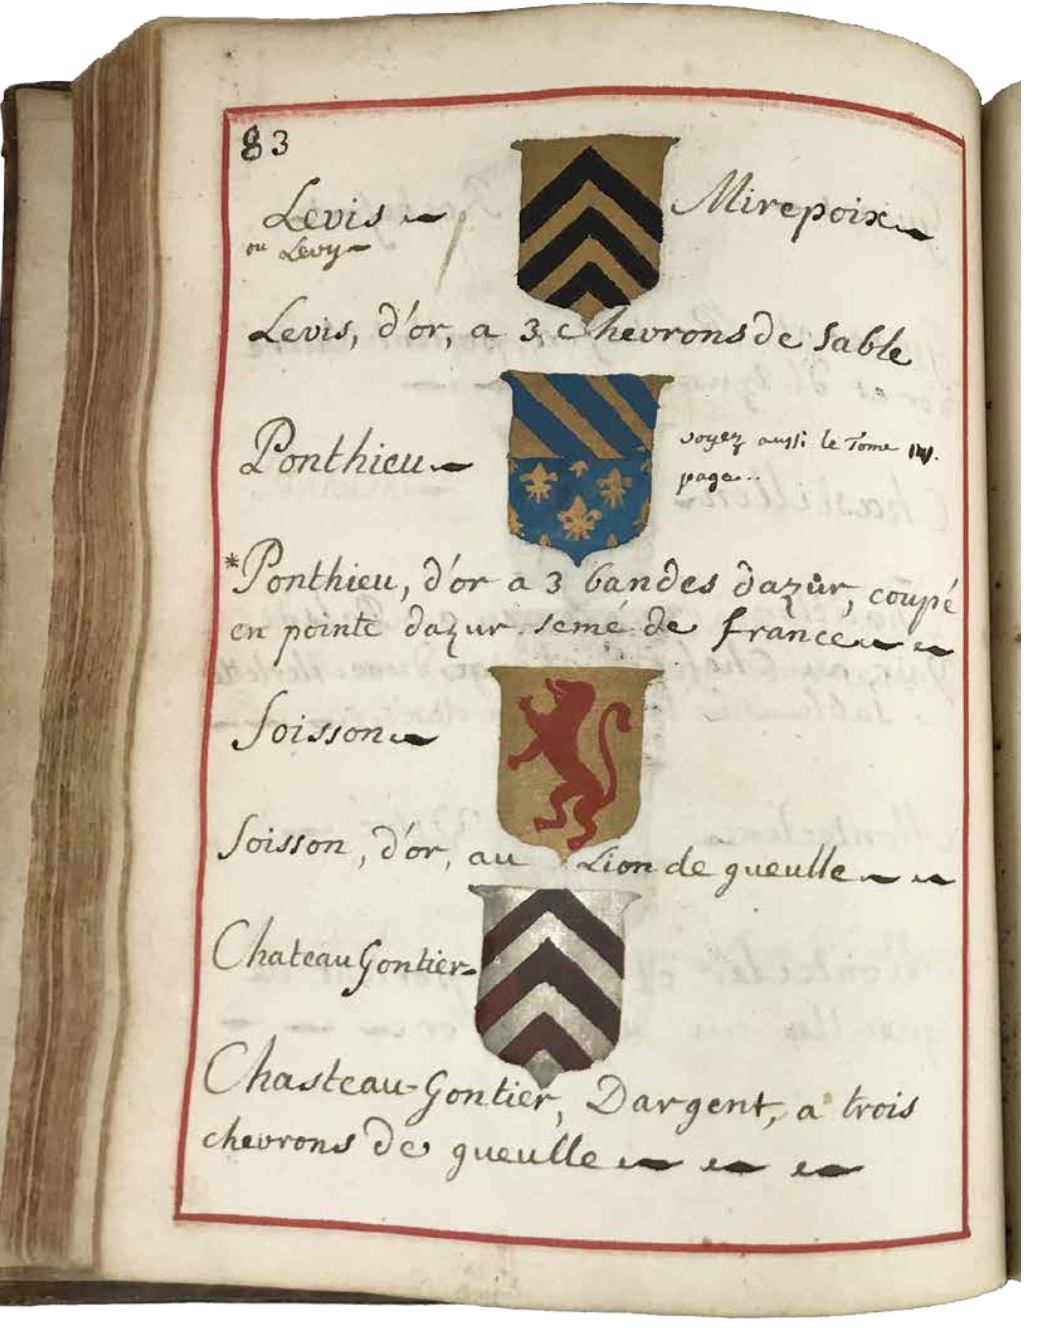 83
Levis
Mirepoix
ou Levy
Levis, d'or, a 3 chevrons de sable
Ponthieu
voyez aussi le Tome
page..
*Ponthieu, d'or a 3 bandes dazur, coupé
en pointe dazur semé de france
Soisson
Soisson, d'or, au Lion de gueulle
Chateau Gontier
Chasteau-Gontier, Dargent, a trois
chevrons de gueulle